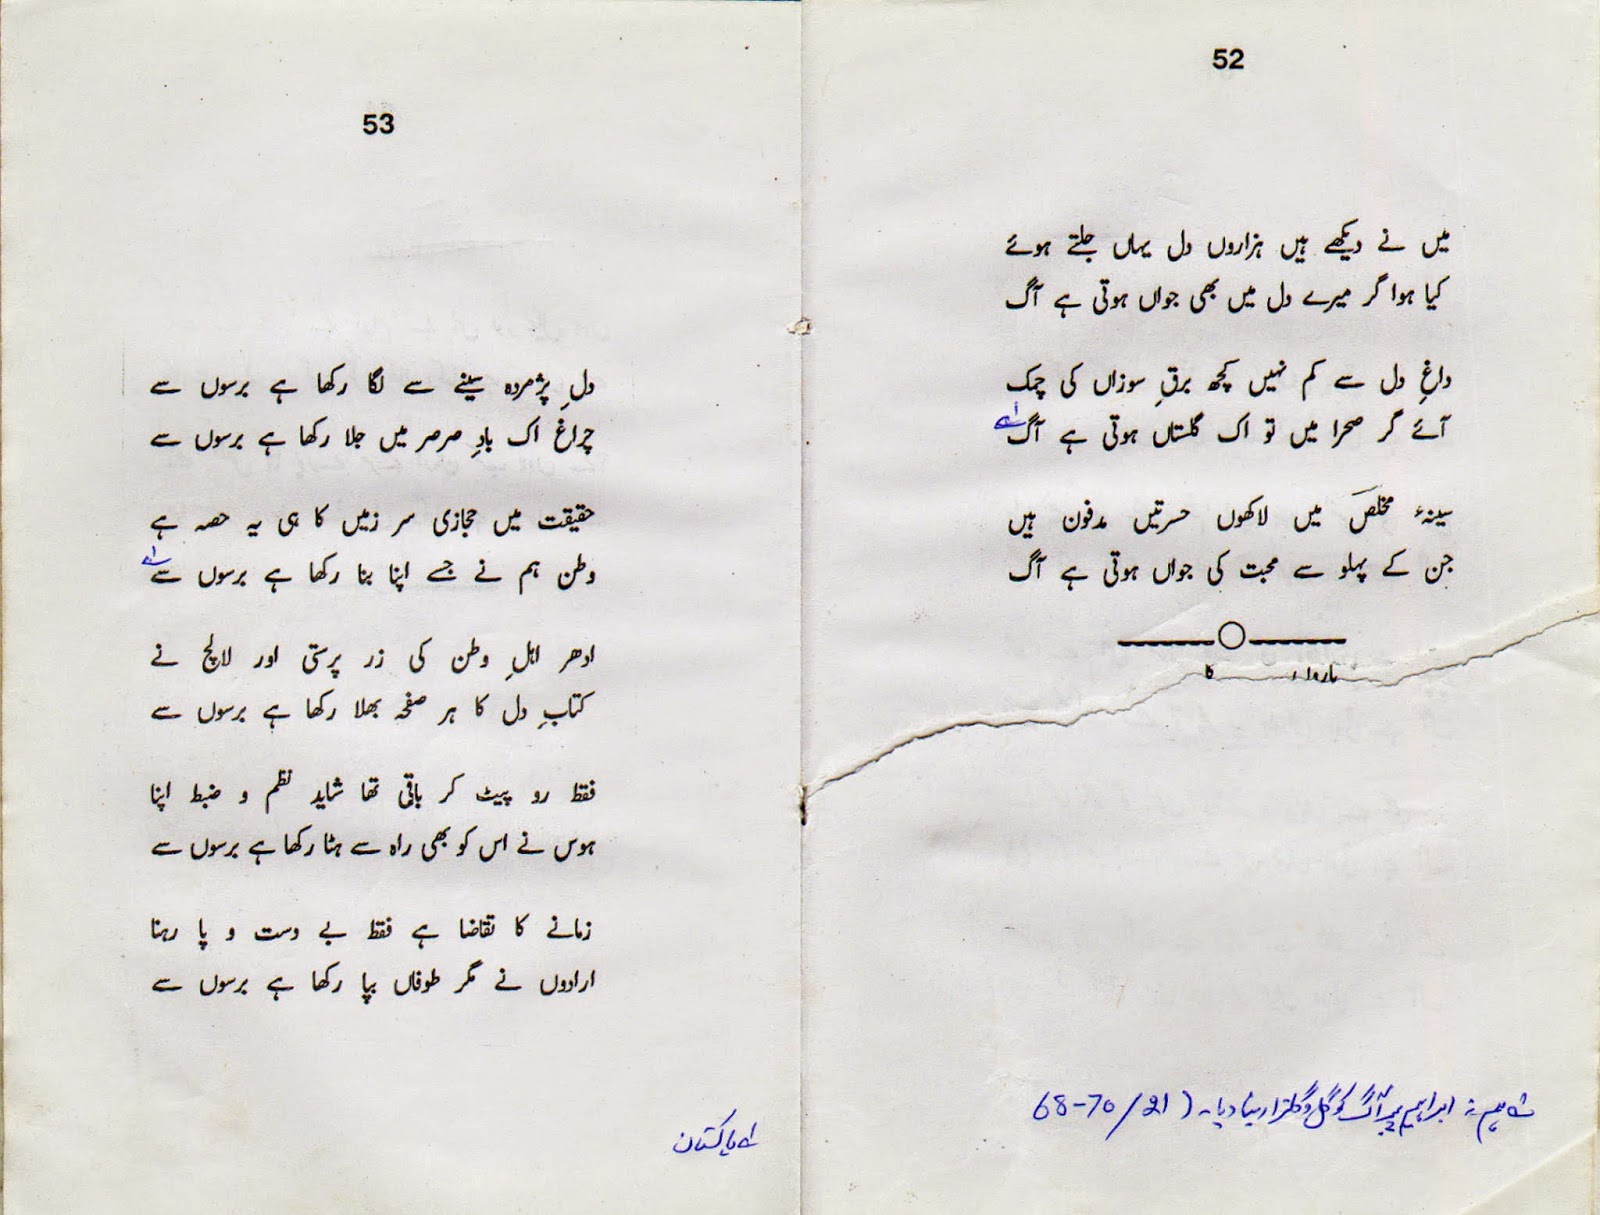 52
میں نے دیکھے ہیں ہزاروں دل یہاں جلتے ہوئے
کیا ہوا گر میرے دل میں بھی جواں ہوتی ہے آگ
داغِ دل سے کم نہیں کچھ برقِ سوزاں کی چمک
آئے گر صحرا میں تو اک گلستاں ہوتی ہے آگ
سینۂ مخلص میں لاکھوں حسرتیں مدفون ہیں
جن کے پہلو سے محبت کی جواں ہوتی ہے آگ
کا
ہم نے ابراہیم پر آگ کو گل و گلزار بنا دیا۔ (21/68-70
53
دلِ پژمردہ سینے سے لگا رکھا ہے برسوں سے
چراغ اک بادِ صرصر میں جلا رکھا ہے برسوں سے
حقیقت میں حجازی سر زمیں کا ہی یہ حصہ ہے
وطن ہم نے جسے اپنا بنا رکھا ہے برسوں سے
ادھر اہلِ وطن کی زر پرستی اور لالچ نے
کتابِ دل کا ہر صفحہ بھلا رکھا ہے برسوں سے
فقط رو پیٹ کر باقی تھا شاید نظم و ضبط اپنا
ہوس نے اس کو بھی راہ سے ہٹا رکھا ہے برسوں سے
زمانے کا تقاضا ہے فقط بے دست و پا رہنا
ارادوں نے مگر طوفاں بپا رکھا ہے برسوں سے
پاکستان